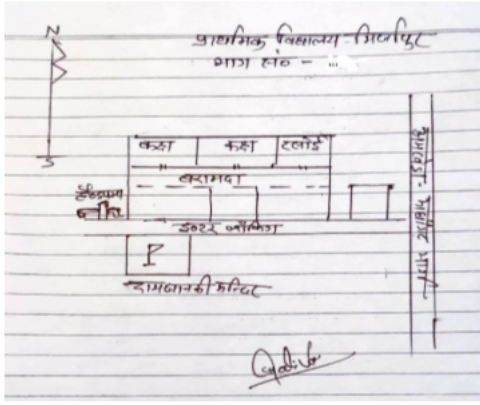 N
प्राथमिक विद्यालय - मिर्जापुर
भाग सं० -
S
कक्ष
कक्ष
रसोई
बरामदा
हैण्डपम्प
इण्टर लॉकिंग
P
रामजानकी मन्दिर